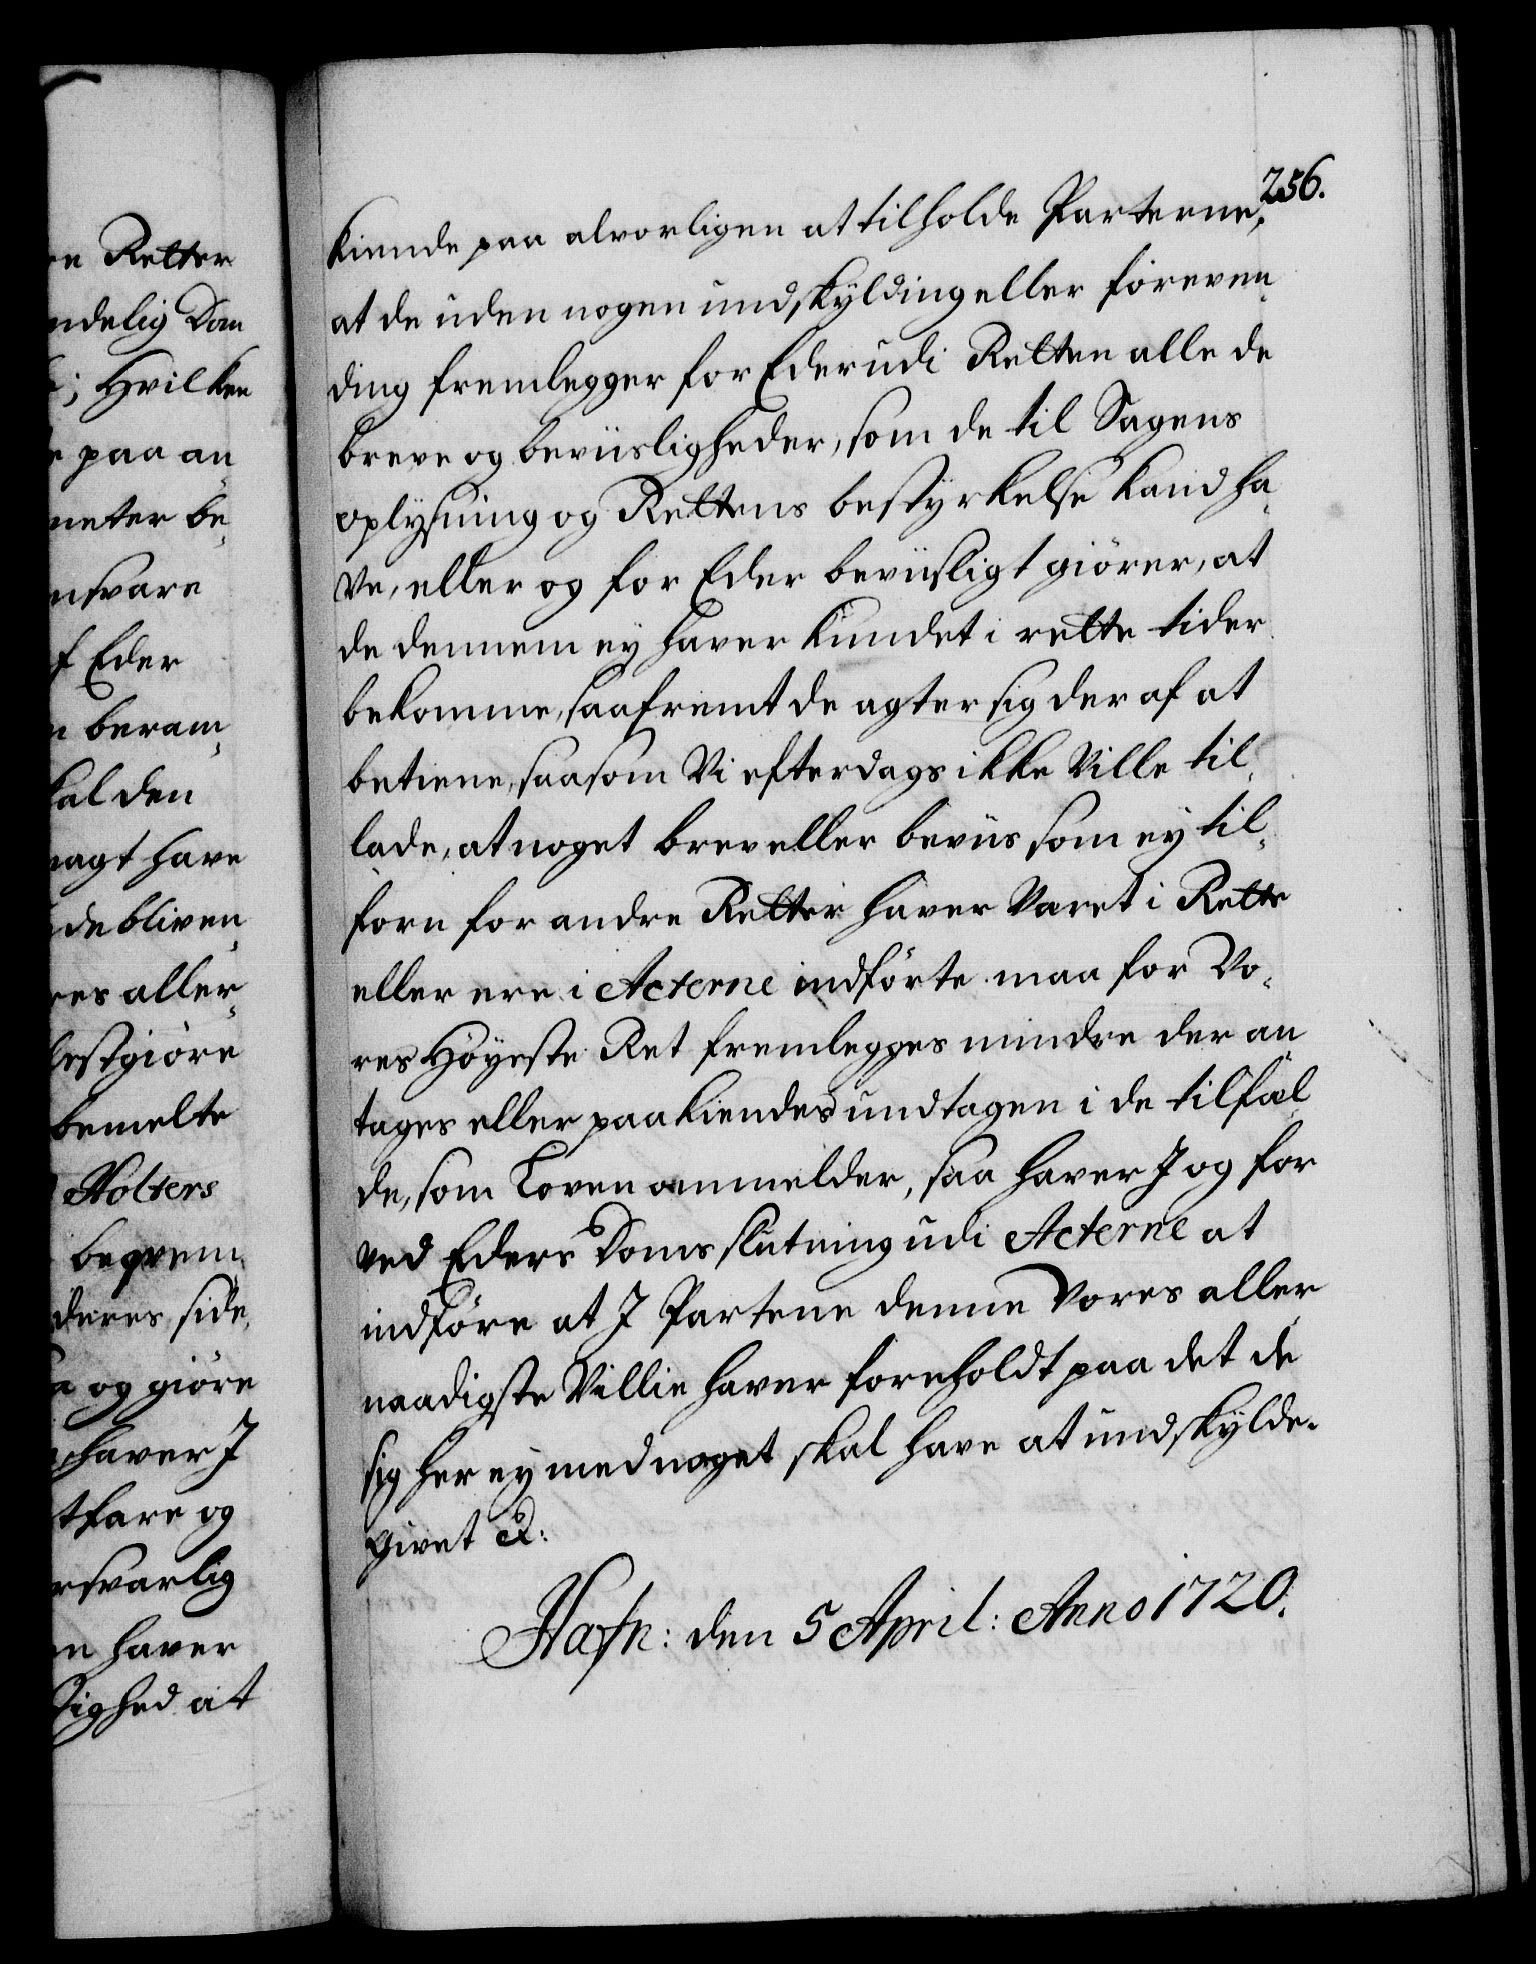 en Retter
ndelig Dom
; Hvilken
e paa an
neter be„
nsvare
f Eder
n beram„
kal den
magt have
de bliven„
res aller„
lestgiöre
bemelte
Holters
beqvem„
deres side,
a og giöre
haver I
tfare og
rsvarlig
en haver
dighed at
256.
kiende paa alvorligen at tilholde Parterne,
at de uden nogen undskylding eller foreven„
ding fremlegger for Eder udi Retten alle de
breve og beviisligheder, som de til Sagens
oplysning og Rettens bestyrkelse kand ha„
ve, eller og for Eder beviisligt giörer, at
de dennem ey haver kundet i rette tider
bekomme, saafremt de agter sig der af at
betiene, saasom Vi efterdags ikke Ville til„
lade, at noget brev eller beviis som ey til„
forn for andre Retter haver Varet i Rette
eller ere i Acterne indförte maa for Vo„
res Höyeste Ret fremlegges mindre der an
tages eller paakiendes undtagen i de tilfæl
de, som Loven ommelder, saa haver I og for
ved Eders Doms slutning udi Acterne at
indföre at I Partene denne Vores aller
naadigste Villie haver foreholdt paa det de
sig her ey med noget skal have at undskylde.
Givet &:
Hafn: den 5 April: Anno 1720.